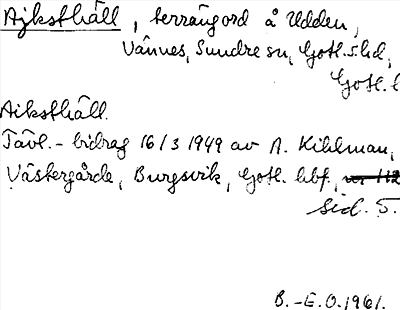 Ajksthäll, terrängord å Udden,
Vännes, Sundre sn, Gotl. s. hd,
Gotl. l
Aiksthäll.
Tävl.-bidrag 16/3 1949 av A. Kihlman,
Västergårde, Burgsvik, Gotl. hbf,
sid. 5.
B.-E.O. 1961.